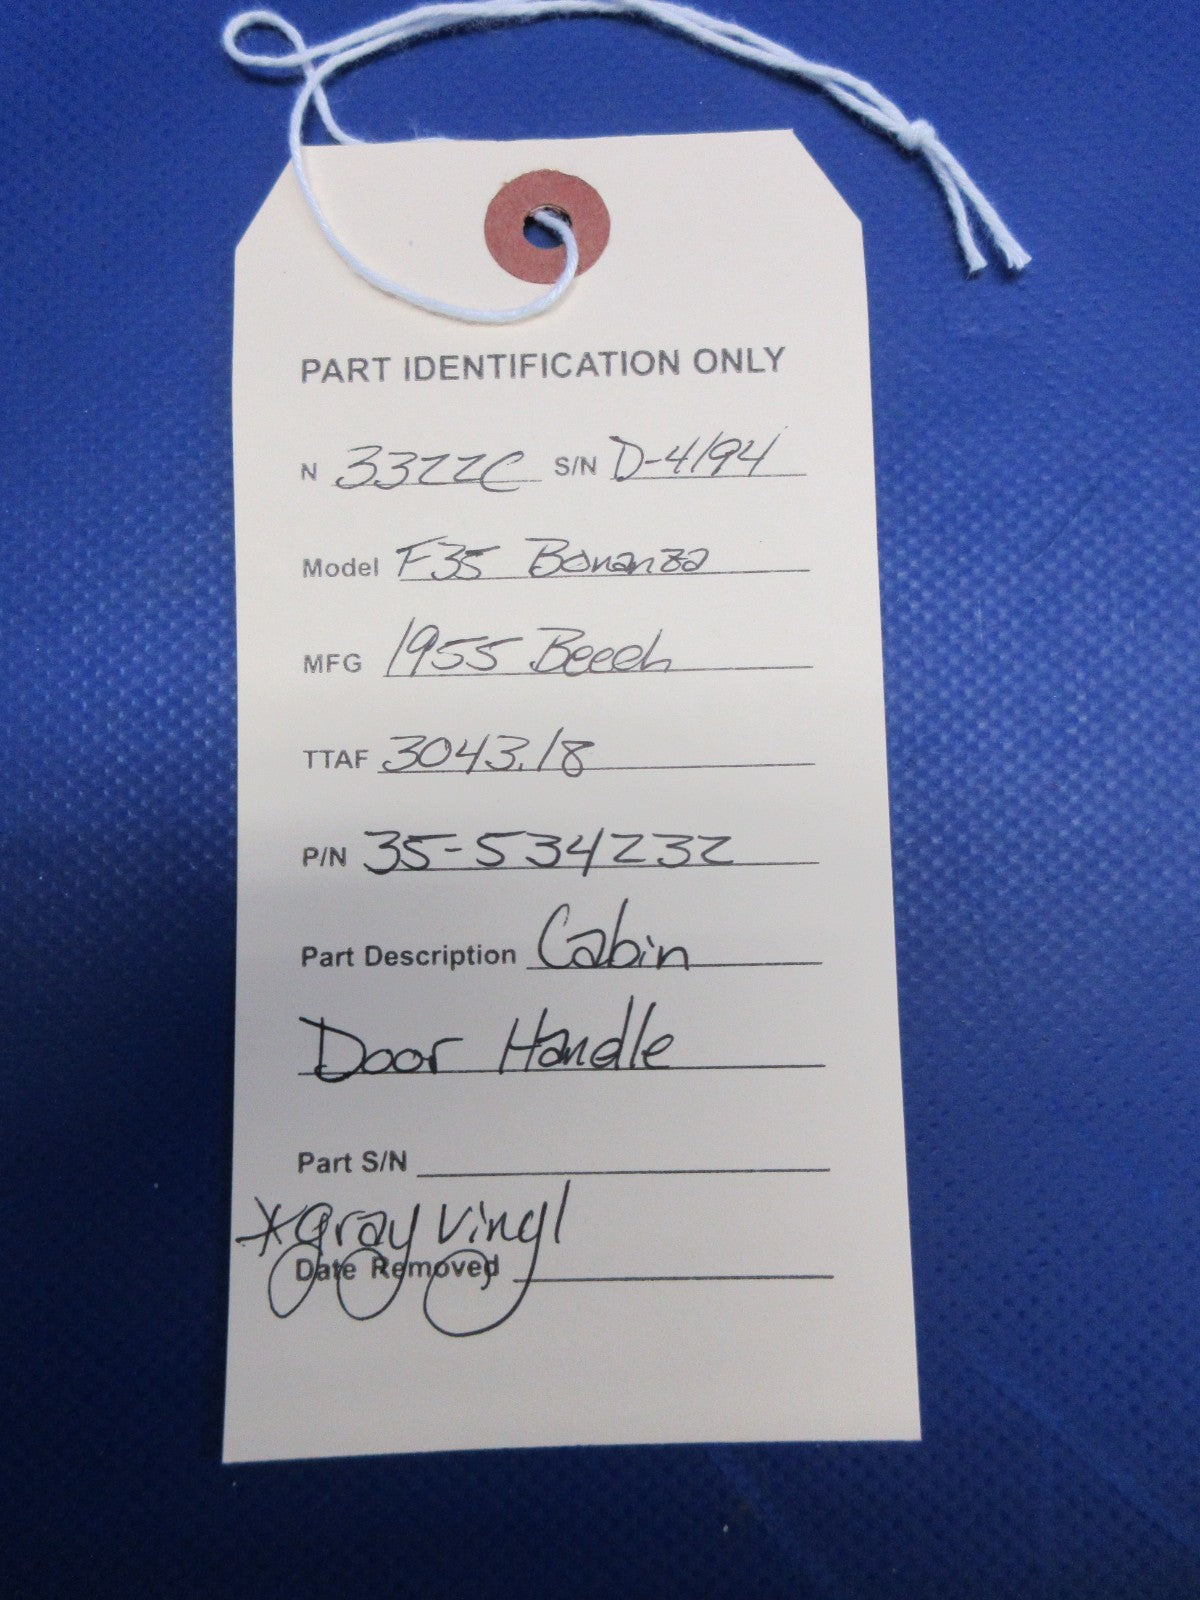 PART IDENTIFICATION ONLY
N 3322C S/N D-4194
Model F35 Bonanza
MFG 1955 Beech
TTAF 3043.18
P/N 35-534232
Part Description Cabin
Door Handle
Part S/N
*gray vinyl
Date Removed